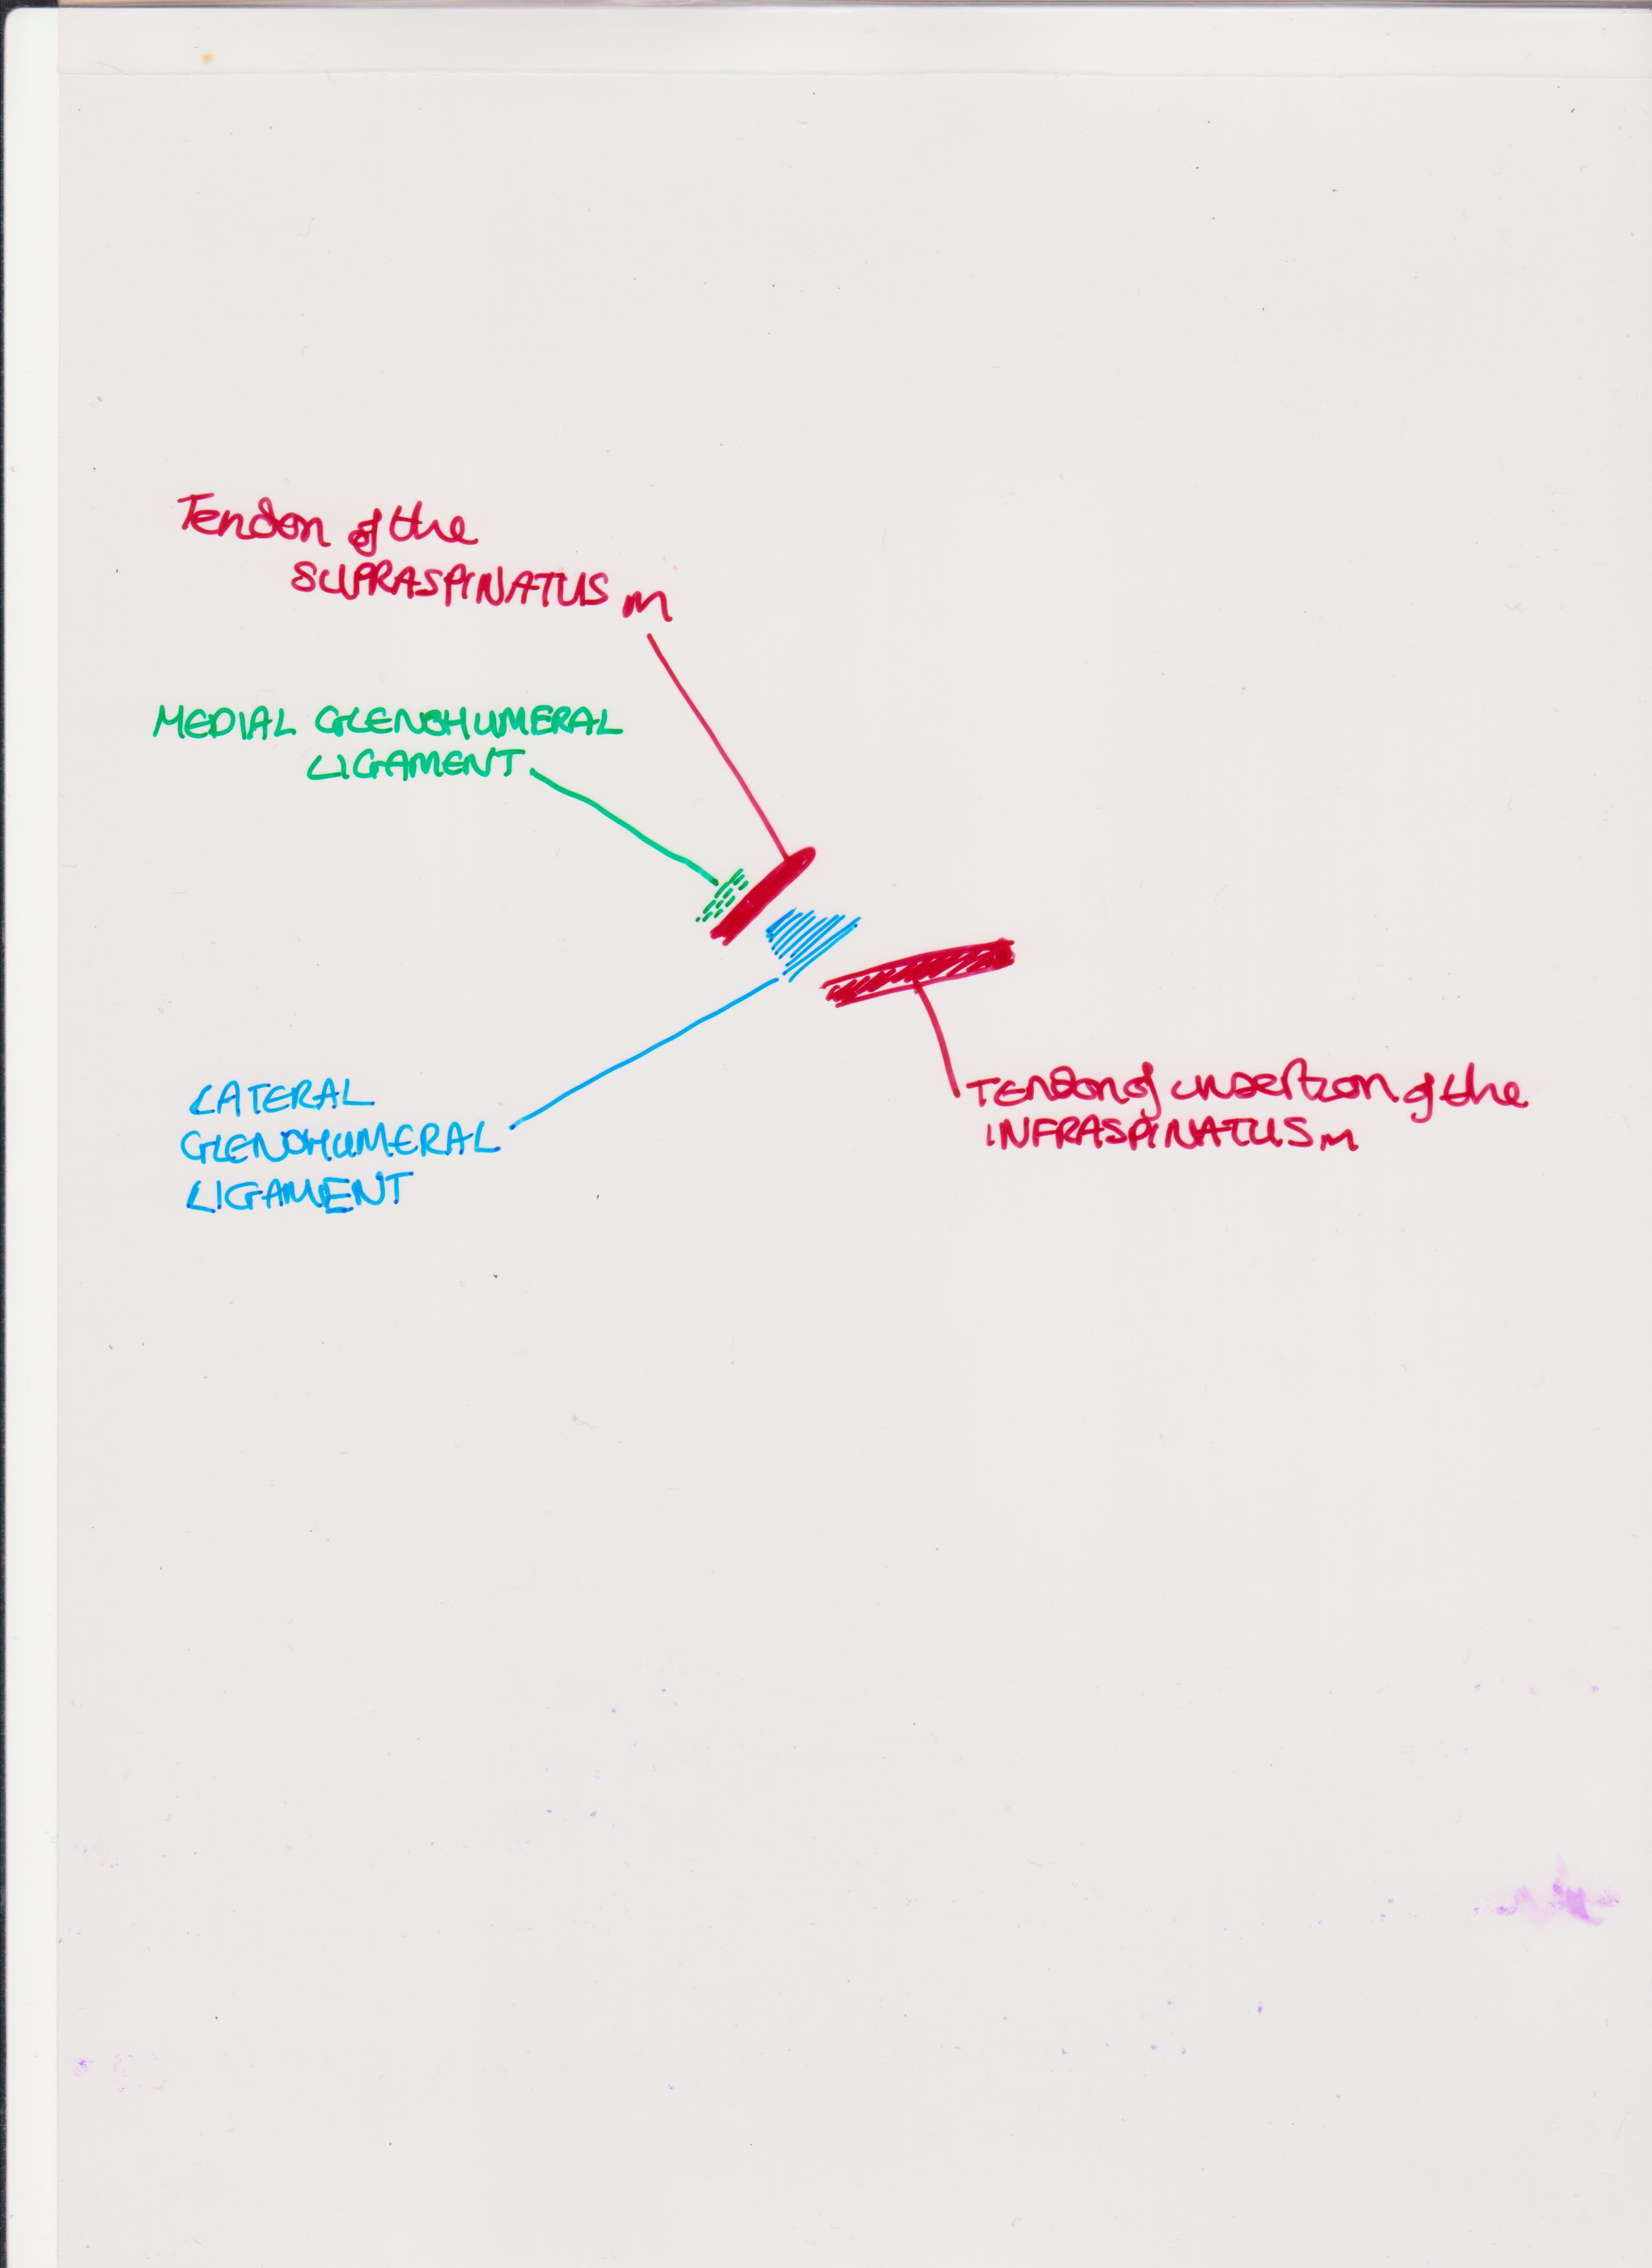 Tendon of the
SUPRASPINATUS m
MEDIAL GLENOHUMERAL
LIGAMENT
LATERAL
GLENOHUMERAL
LIGAMENT
TENdon of insertion of the
INFRASPINATUS m